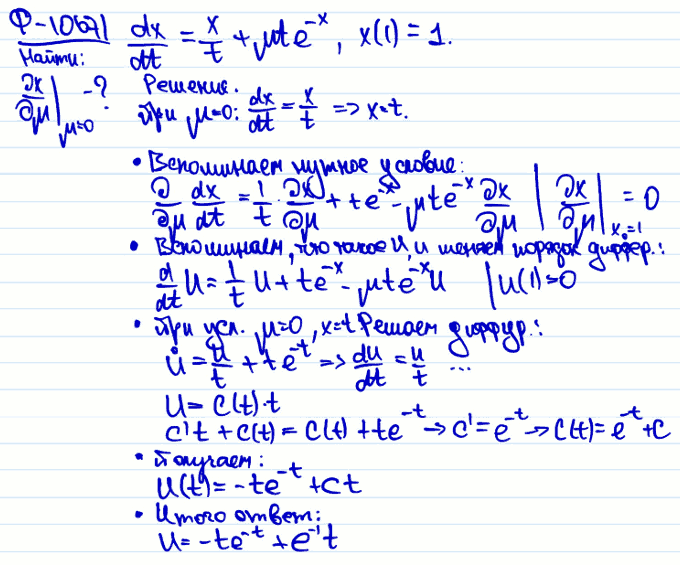 Ф-1067 dx/dt = x/t + μte^{-x}, x(1) = 1.
Найти:
∂x/∂μ|_{μ=0} - ?
Решение.
При μ=0: dx/dt = x/t => x=t.
• Вспоминаем нужное условие:
∂/∂μ dx/dt = 1/t · ∂x/∂μ + te^{-x} - μte^{-x} ∂x/∂μ | ∂x/∂μ|_{x_0=1} = 0
• Вспоминаем, что такое u, и меняем порядок диффер.:
d/dt u = 1/t u + te^{-x} - μte^{-x}u |u(1)=0
• При усл. μ=0, x=t Решаем диффур.:
u̇ = u/t + te^{-t} => du/dt = u/t ...
u = C(t)·t
C't + C(t) = C(t) + te^{-t} → C' = e^{-t} → C(t) = e^{-t} + C
• Получаем:
u(t) = -te^{-t} + Ct
• Итого ответ:
u = -te^{-t} + e^{-1}t